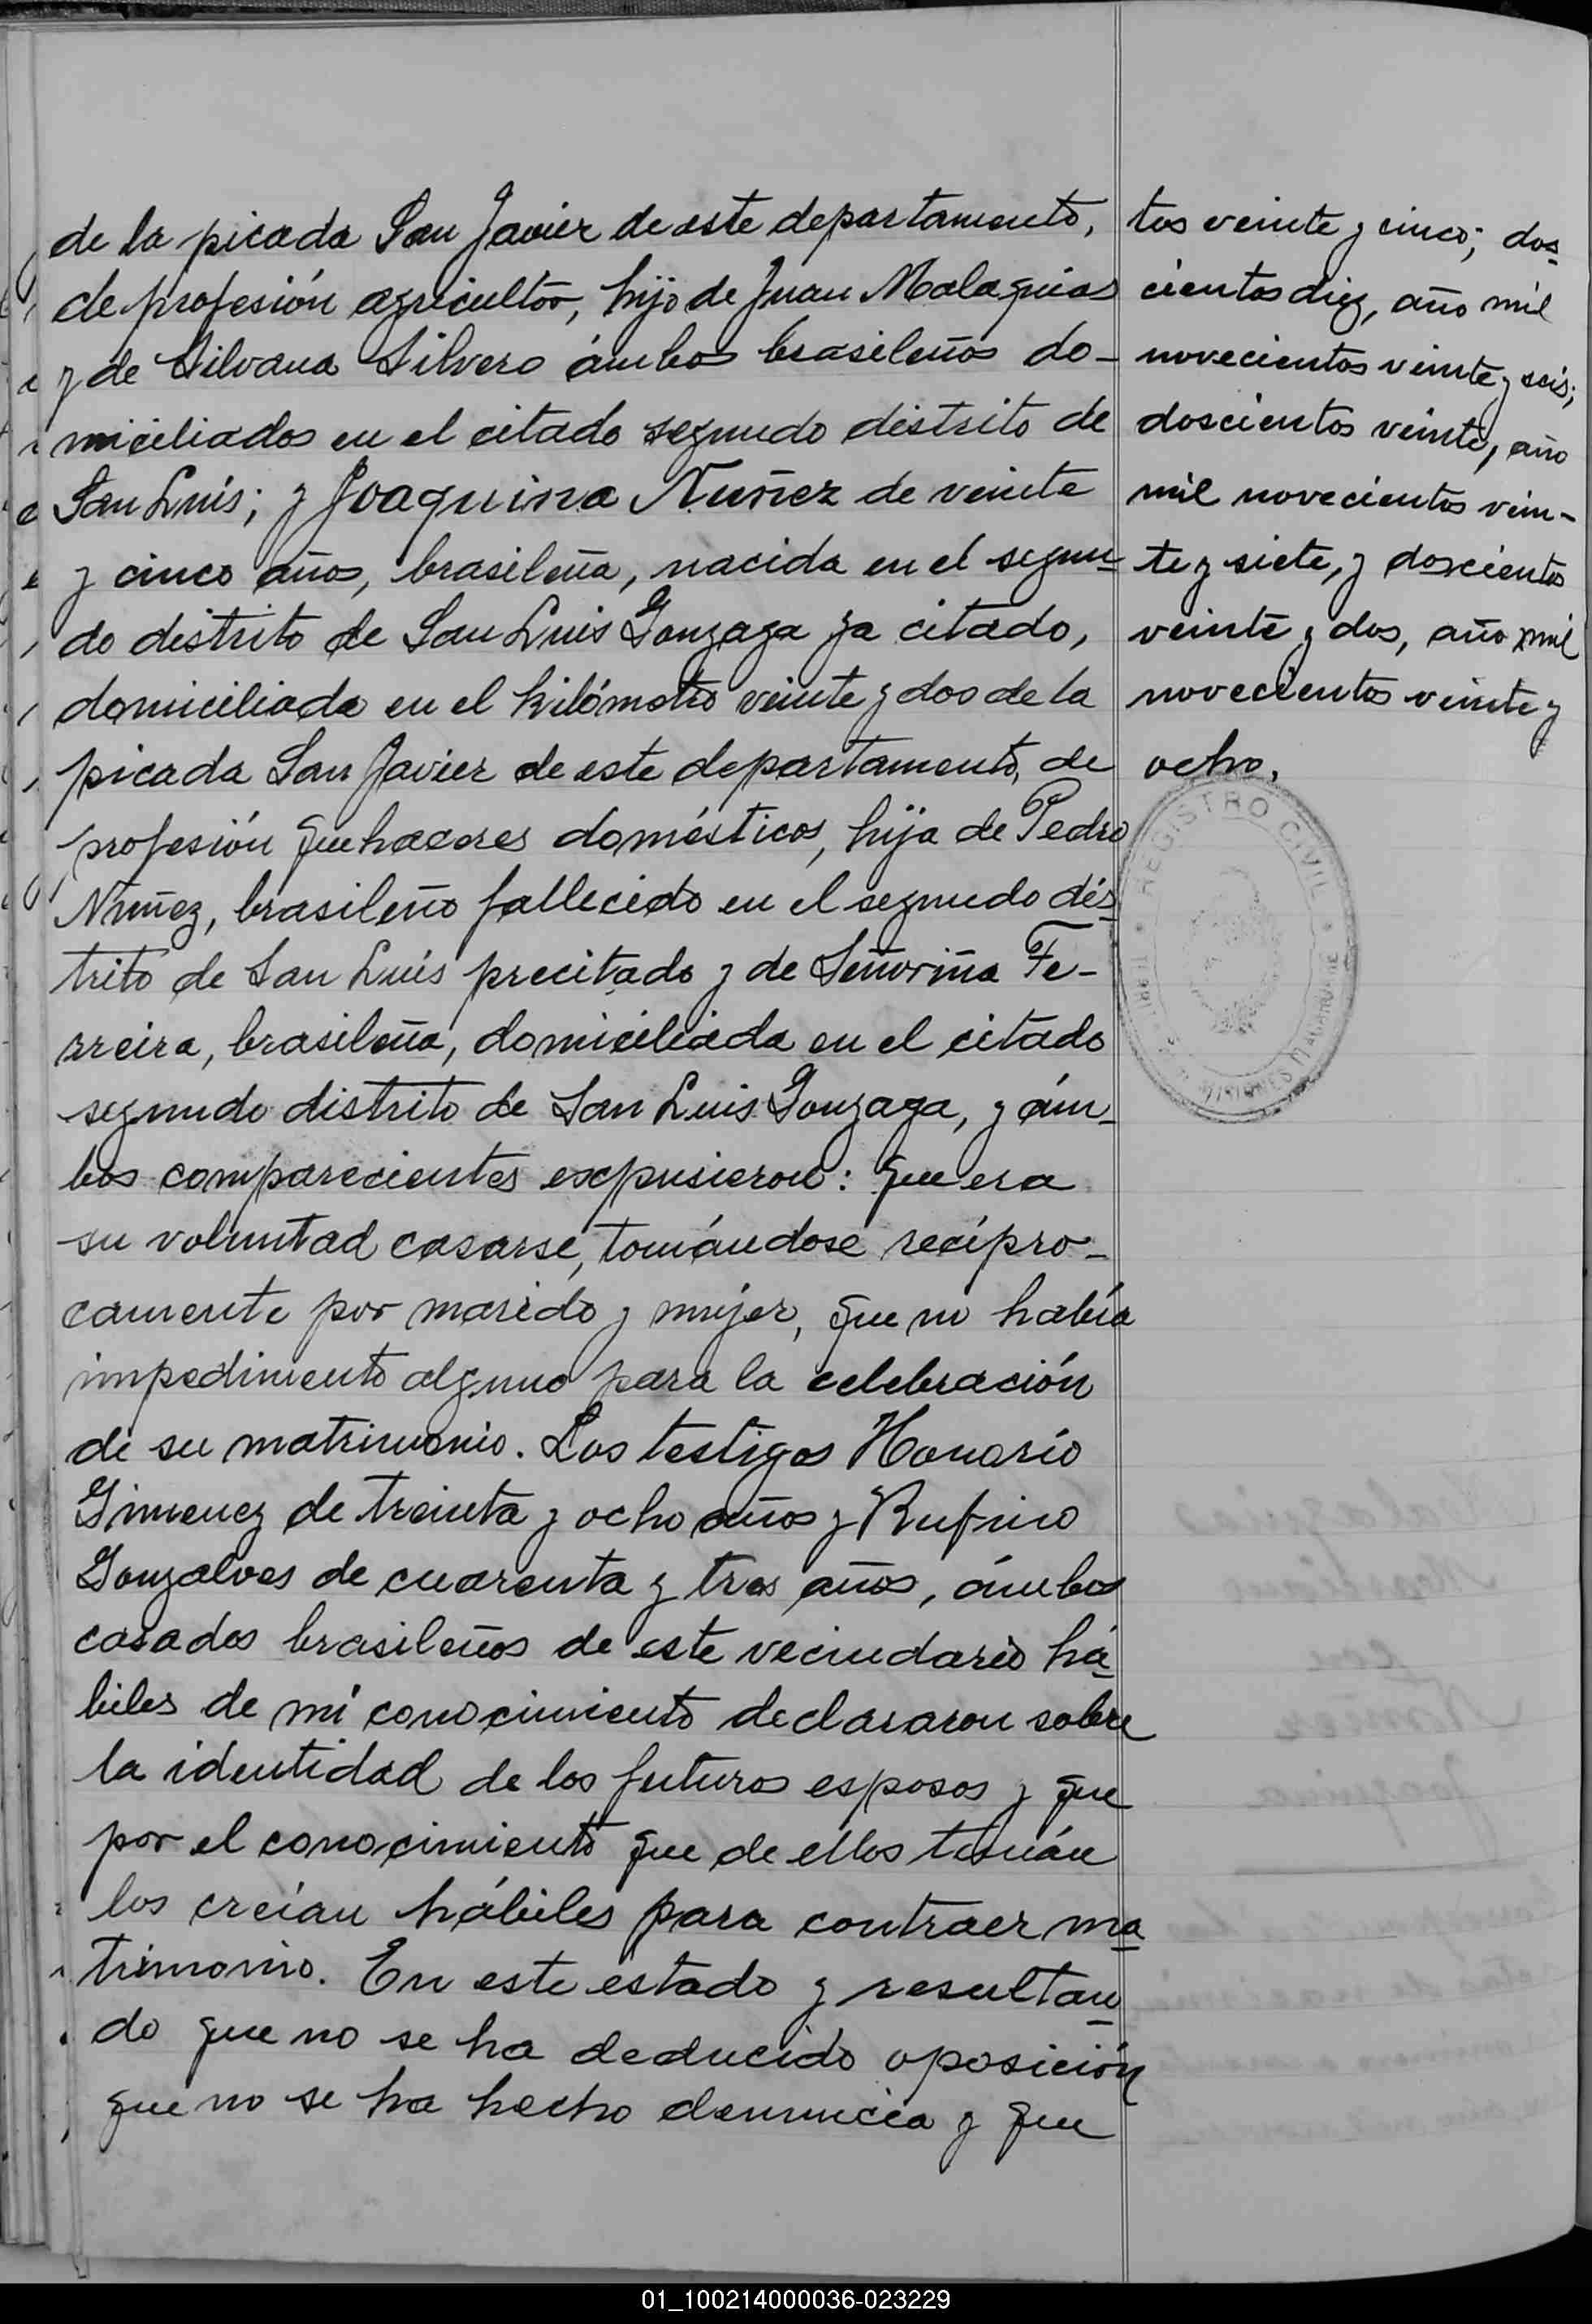 de la picada San Javier de este departamento,
de profesión agricultor, hijo de Juan Malaquias
y de Silvana Silvero ámbos brasileños do-
miciliados en el citado segundo distrito de
San Luis; y Joaquina Nuñez de veinte
y cinco años, brasileña, nacida en el segun-
do distrito de San Luis Gonzaga ya citado,
domiciliada en el kilómetro veinte y dos de la
picada San Javier de este departamento, de
profesión quehaceres domésticos, hija de Pedro
Nuñez, brasileño fallecido en el segundo dis-
trito de San Luis precitado y de Señoriña Fe-
rreira, brasileña, domiciliada en el citado
segundo distrito de San Luis Gonzaga, y ám-
bos comparecientes expusieron: que era
su voluntad casarse, tomándose recípro-
camente por marido y mujer, que no había
impedimento alguno para la celebración
de su matrimonio. Los testigos Honorio
Gimenez de treinta y ocho años y Rufino
Gonzalves de cuarenta y tres años, ámbos
casados brasileños de este vecindario há-
biles de mi conocimiento declararon sobre
la identidad de los futuros esposos y que
por el conocimiento que de ellos tenían
los creían hábiles para contraer ma-
trimonio. En este estado y resultan-
do que no se ha deducido oposición
que no se ha hecho denuncia y que
tos veinte y cinco; dos-
cientos diez, año mil
novecientos veinte y seis;
doscientos veinte, año
mil novecientos vein-
te y siete, y doscientos
veinte y dos, año mil
novecientos veinte y
ocho.
REGISTRO CIVIL
MISIONES
01_100214000036-023229